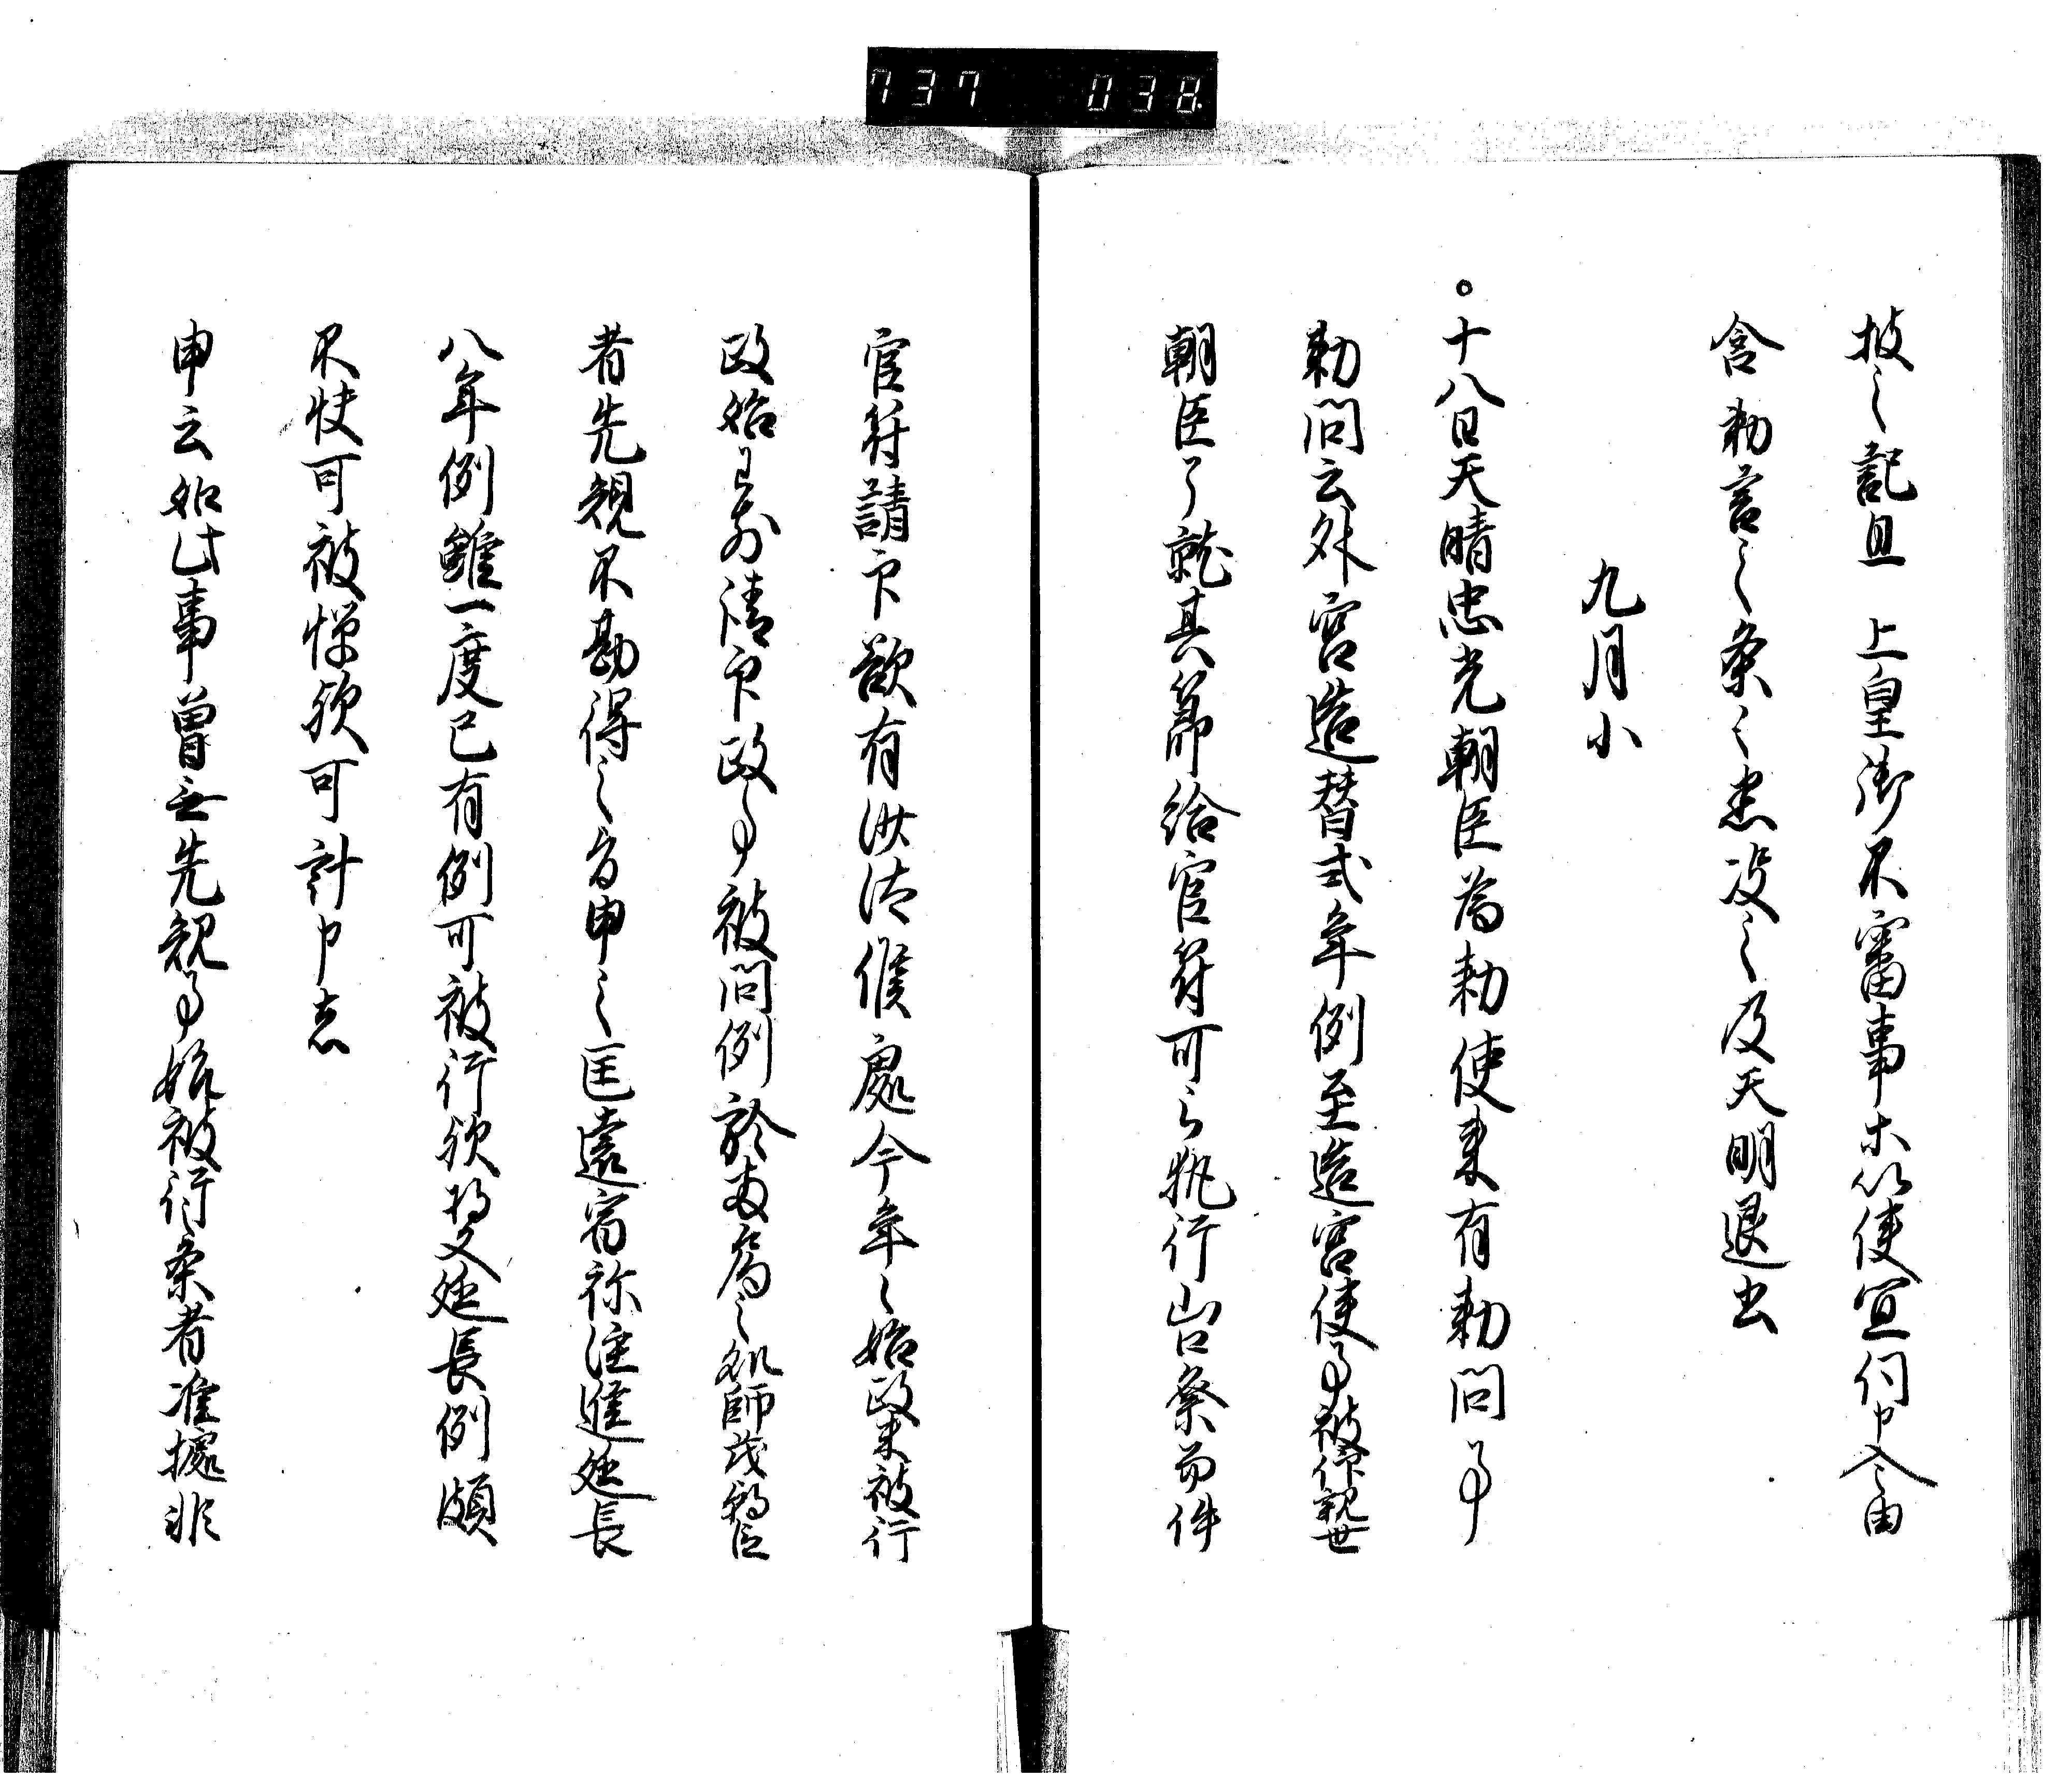 737 038
披之記且 上皇御不審事等以使宣問申入之由
含勅言之条々悉没之及天明退出
九月小
。十八日天晴忠光朝臣為勅使来有勅問事
勅問云外宮造替式年例至造宮使事被仰親世
朝臣了就其節給官符可被執行山口祭而件
官符請印欲有沙汰候處今年々始政未被行
政始以前請印政事被問例於両局之処師茂朝臣
者先規不勘得之旨申之匡遠宿祢注進延長
八年例雖一度已有例可被行歟将又延長例頗
不快可被憚歟可計申者
申云如此事曽無先規事始被行条者准拠非